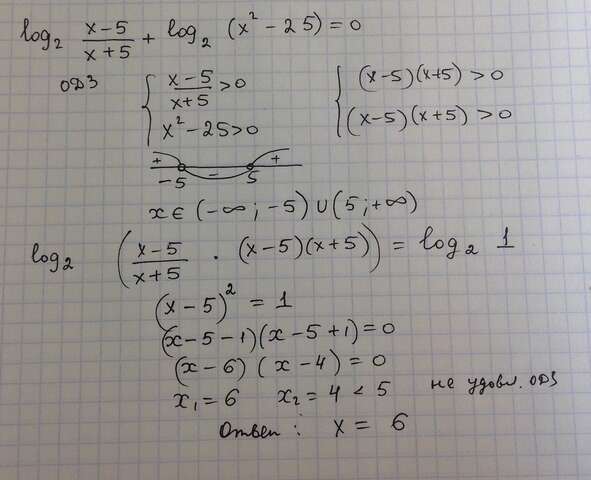 log₂ (x-5)/(x+5) + log₂ (x² - 25) = 0
ОДЗ { (x-5)/(x+5) > 0 { (x-5)(x+5) > 0
x² - 25 > 0 (x-5)(x+5) > 0
+ - +
-5 5
x ∈ (-∞; -5) ∪ (5; +∞)
log₂ ((x-5)/(x+5) · (x-5)(x+5)) = log₂ 1
(x-5)² = 1
(x-5-1)(x-5+1) = 0
(x-6)(x-4) = 0
x₁ = 6 x₂ = 4 < 5 не удовл. ОДЗ
Ответ: x = 6